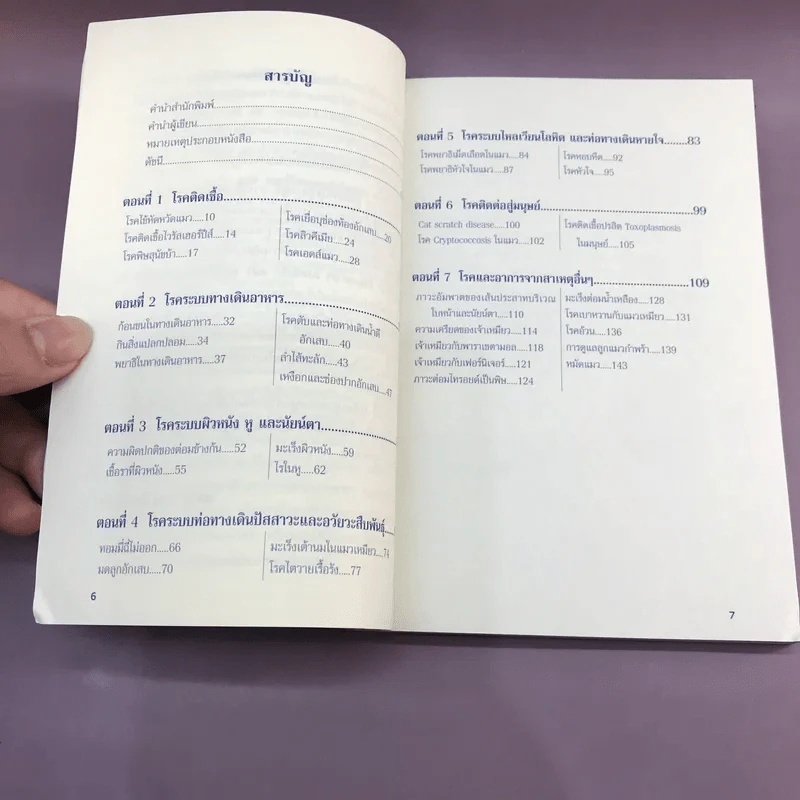 สารบัญ
คำนำสำนักพิมพ์
คำนำผู้เขียน
หมายเหตุประกอบหนังสือ
ดัชนี
ตอนที่ 1 โรคติดเชื้อ
โรคไข้หัดหวัดแมว.....10
โรคติดเชื้อไวรัสเฮอร์ปีส์.....14
โรคพิษสุนัขบ้า.....17
โรคเยื่อบุช่องท้องอักเสบ.....20
โรคลิวคีเมีย.....24
โรคเอดส์แมว.....28
ตอนที่ 2 โรคระบบทางเดินอาหาร
ก้อนขนในทางเดินอาหาร.....32
กินสิ่งแปลกปลอม.....34
พยาธิในทางเดินอาหาร.....37
โรคตับและท่อทางเดินน้ำดี
อักเสบ.....40
ลำไส้ทะลัก.....43
เหงือกและช่องปากอักเสบ.....47
ตอนที่ 3 โรคระบบผิวหนัง หู และนัยน์ตา
ความผิดปกติของต่อมข้างก้น.....52
เชื้อราที่ผิวหนัง.....55
มะเร็งผิวหนัง.....59
ไรในหู.....62
ตอนที่ 4 โรคระบบท่อทางเดินปัสสาวะและอวัยวะสืบพันธุ์
ทอมมี่ฉี่ไม่ออก.....66
มดลูกอักเสบ.....70
มะเร็งเต้านมในแมวเหมียว.....74
โรคไตวายเรื้อรัง.....77
6
ตอนที่ 5 โรคระบบไหลเวียนโลหิต และท่อทางเดินหายใจ........83
โรคพยาธิเม็ดเลือดในแมว.....84
โรคพยาธิหัวใจในแมว.....87
โรคหอบหืด.....92
โรคหัวใจ.....95
ตอนที่ 6 โรคติดต่อสู่มนุษย์........99
Cat scratch disease.....100
โรค Cryptococcosis ในแมว.....102
โรคติดเชื้อปรสิต Toxoplasmosis
ในมนุษย์.....105
ตอนที่ 7 โรคและอาการจากสาเหตุอื่นๆ........109
ภาวะอัมพาตของเส้นประสาทบริเวณ
ใบหน้าและนัยน์ตา.....110
ความเครียดของเจ้าเหมียว.....114
เจ้าเหมียวกับพาราเซตามอล.....118
เจ้าเหมียวกับเฟอร์นิเจอร์.....121
ภาวะต่อมไทรอยด์เป็นพิษ.....124
มะเร็งต่อมน้ำเหลือง.....128
โรคเบาหวานกับแมวเหมียว.....131
โรคอ้วน.....136
การดูแลลูกแมวกำพร้า.....139
หมัดแมว.....143
7